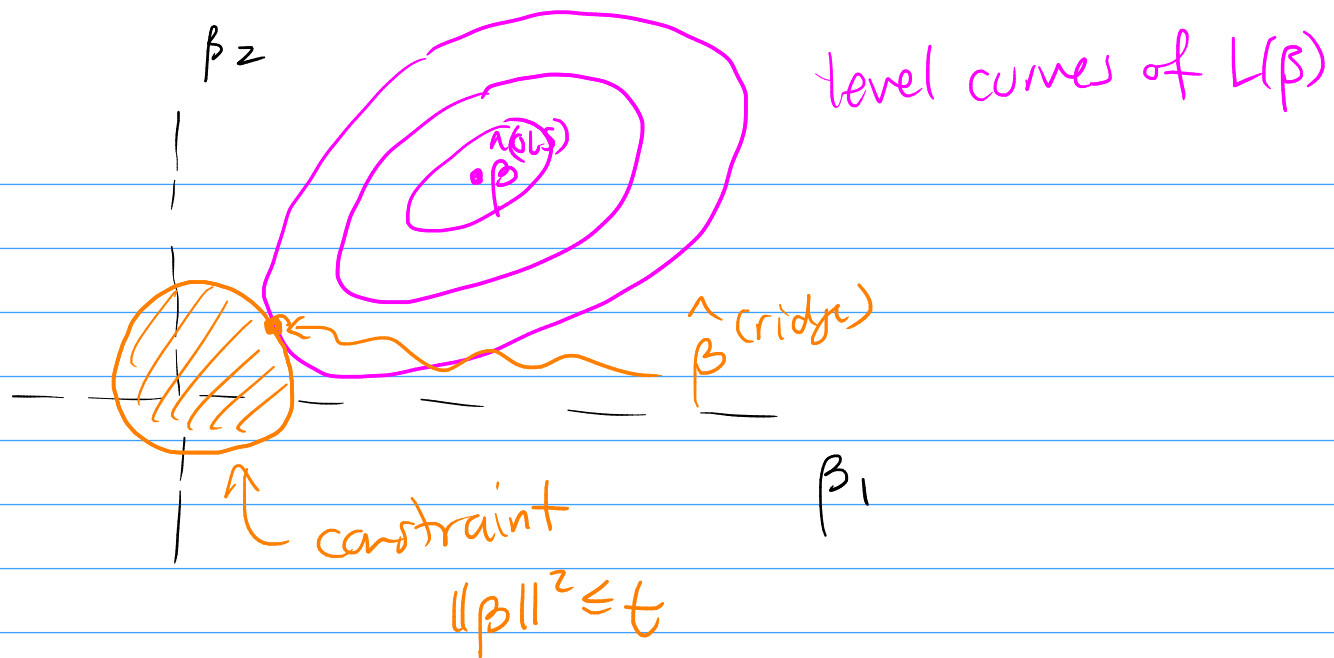 β2
level curves of L(β)
β̂(OLS)
β̂(ridge)
β1
constraint
||β||² ≤ t